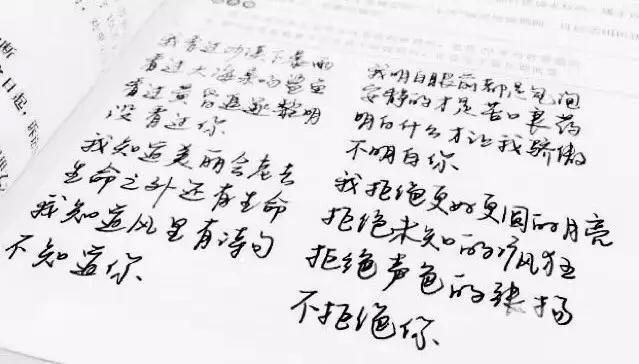 我看过沙漠下暴雨
看过大海亲吻鲨鱼
看过黄昏追逐黎明
没看过你
我知道美丽会老去
生命之外还有生命
我知道风里有诗句
不知道你
我明白眼前都是气泡
安静的才是苦口良药
明白什么才让我骄傲
不明白你
我拒绝更好更圆的月亮
拒绝未知的疯狂
拒绝声色的张扬
不拒绝你